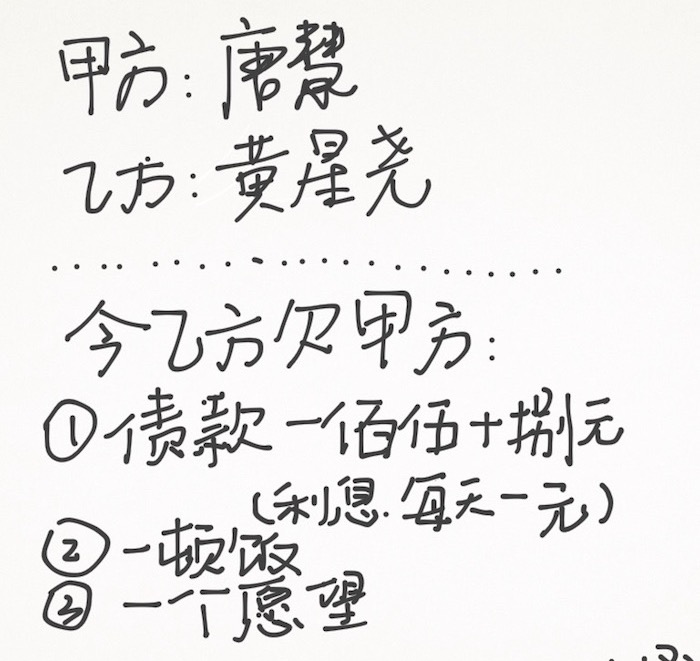 甲方：唐慧
乙方：黄星尧
今乙方欠甲方：
①债款一佰伍十捌元
（利息.每天一元）
②一顿饭
③一个愿望